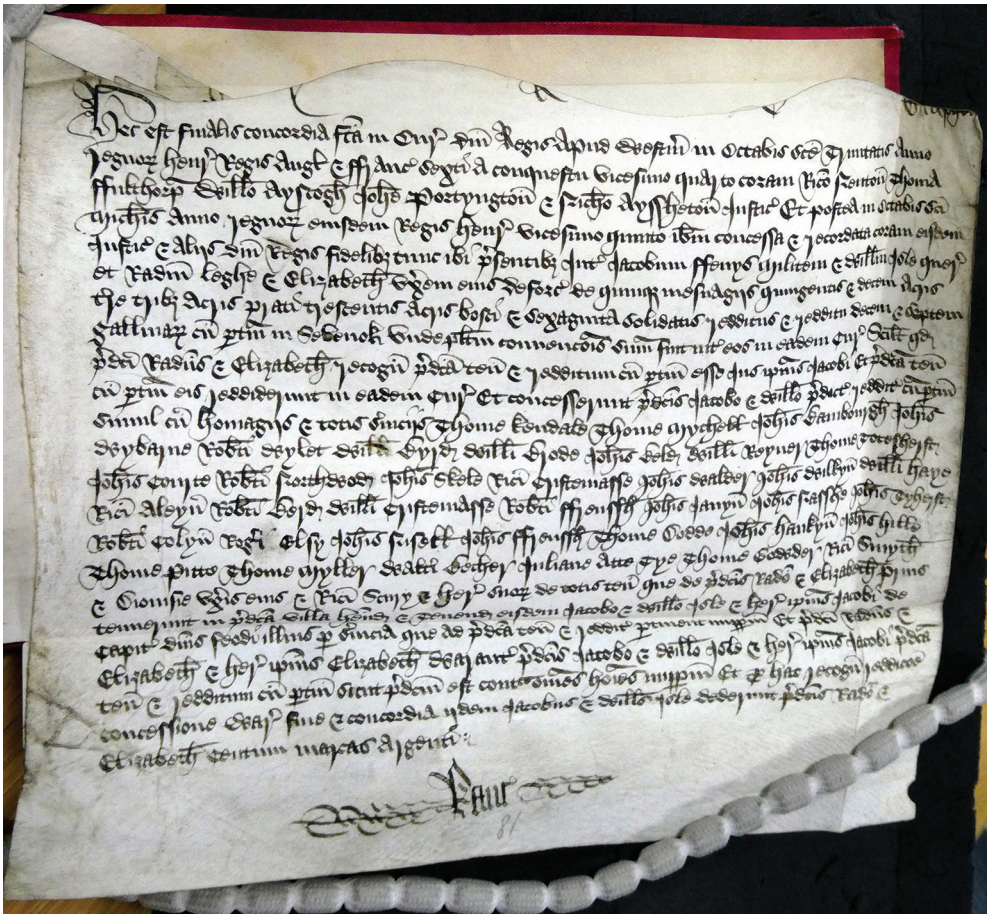 Hec est finalis concordia fca in Cur dni Regis apud Westm in Octabis sce Trinitatis Anno
regnor Henr Regis Angl & ffranc sexti a conquestu vicesimo quarto coram Rico Neuton Thoma
ffulthorp Willo Ayscogh Johe Portyngton & Nicho Ayssheton Justic Et postea in Octabis sci
Michis Anno regnor eiusdem Regis Henr vicesimo quinto ibm concessa & recordata coram eisdem
Justic & alijs dni Regis fidelibz tunc ibi psentibz Int Jacobum ffenys Militem & Willm Isle quer
et Radm Leghe & Elizabeth vxem eius deforc de quinqz mesuagijs quingentis & decem acris
tre tribz acris prati trescentis acris bosci & sexaginta solidatis redditus & redditu decem & septem
gallinar cu ptin in Sevenok vnde plitm convencois sum fuit int eos in eadem Cur Scilt qd
pdci Radus & Elizabeth recogn pdca ten & redditum cu ptin esse Jus ipius Jacobi Et pdca ten
cu ptin eis reddiderunt in eadem Cur Et concesserunt pdcis Jacobo & Willo pdict reddit cu ptin
simul cu homagijs & totis servicijs Thome Kendale Thome Mychell Johis Bambourgh Johis
Robti Wylet Willi Byrd Willi Brode Johis Beld Willi Reyner Thome
Johis Courte Robti Northwode Johis Skele Rici Cristemasse Johis Walder Johis Wilkyn Willi Haye
Rici Aleyn Robti Bord Willi Cristemasse Robti ffrenssh Johis Janyn Johis Nasshe Johis Tyherst
Robti Colyn Rogi Elsy Johis Johis ffrenssh Thome Codde Johis Hankyn Johis Hille
Thome Pitte Thome Myller Walti Becher Juliane Atte Tye Thome Godyder Rici Smyth
& Dionisie vxis eius & Rici & her suor de totis ten que de pdcis Rado & Elizabeth prius
tenuerunt in pdca villa Hend & Tenend eisdem Jacobo & Willo Isle & her ipius Jacobi de
Capit dnis feodi illius p svicia que ad pdca ten & reddit ptinent imppm Et pdci Radus &
Elizabeth & her ipius Elizabeth Warant pdcis Jacobo & Willo Isle & her ipius Jacobi pdca
ten & redditum cu ptin sicut pdcm est cont omes hoies imppm Et p hac recogn reddicoe
concessione War fine & concordia ijdem Jacobus & Willus Isle dederunt pdcis Rado &
Elizabeth Centum marcas argenti
Kanc
81